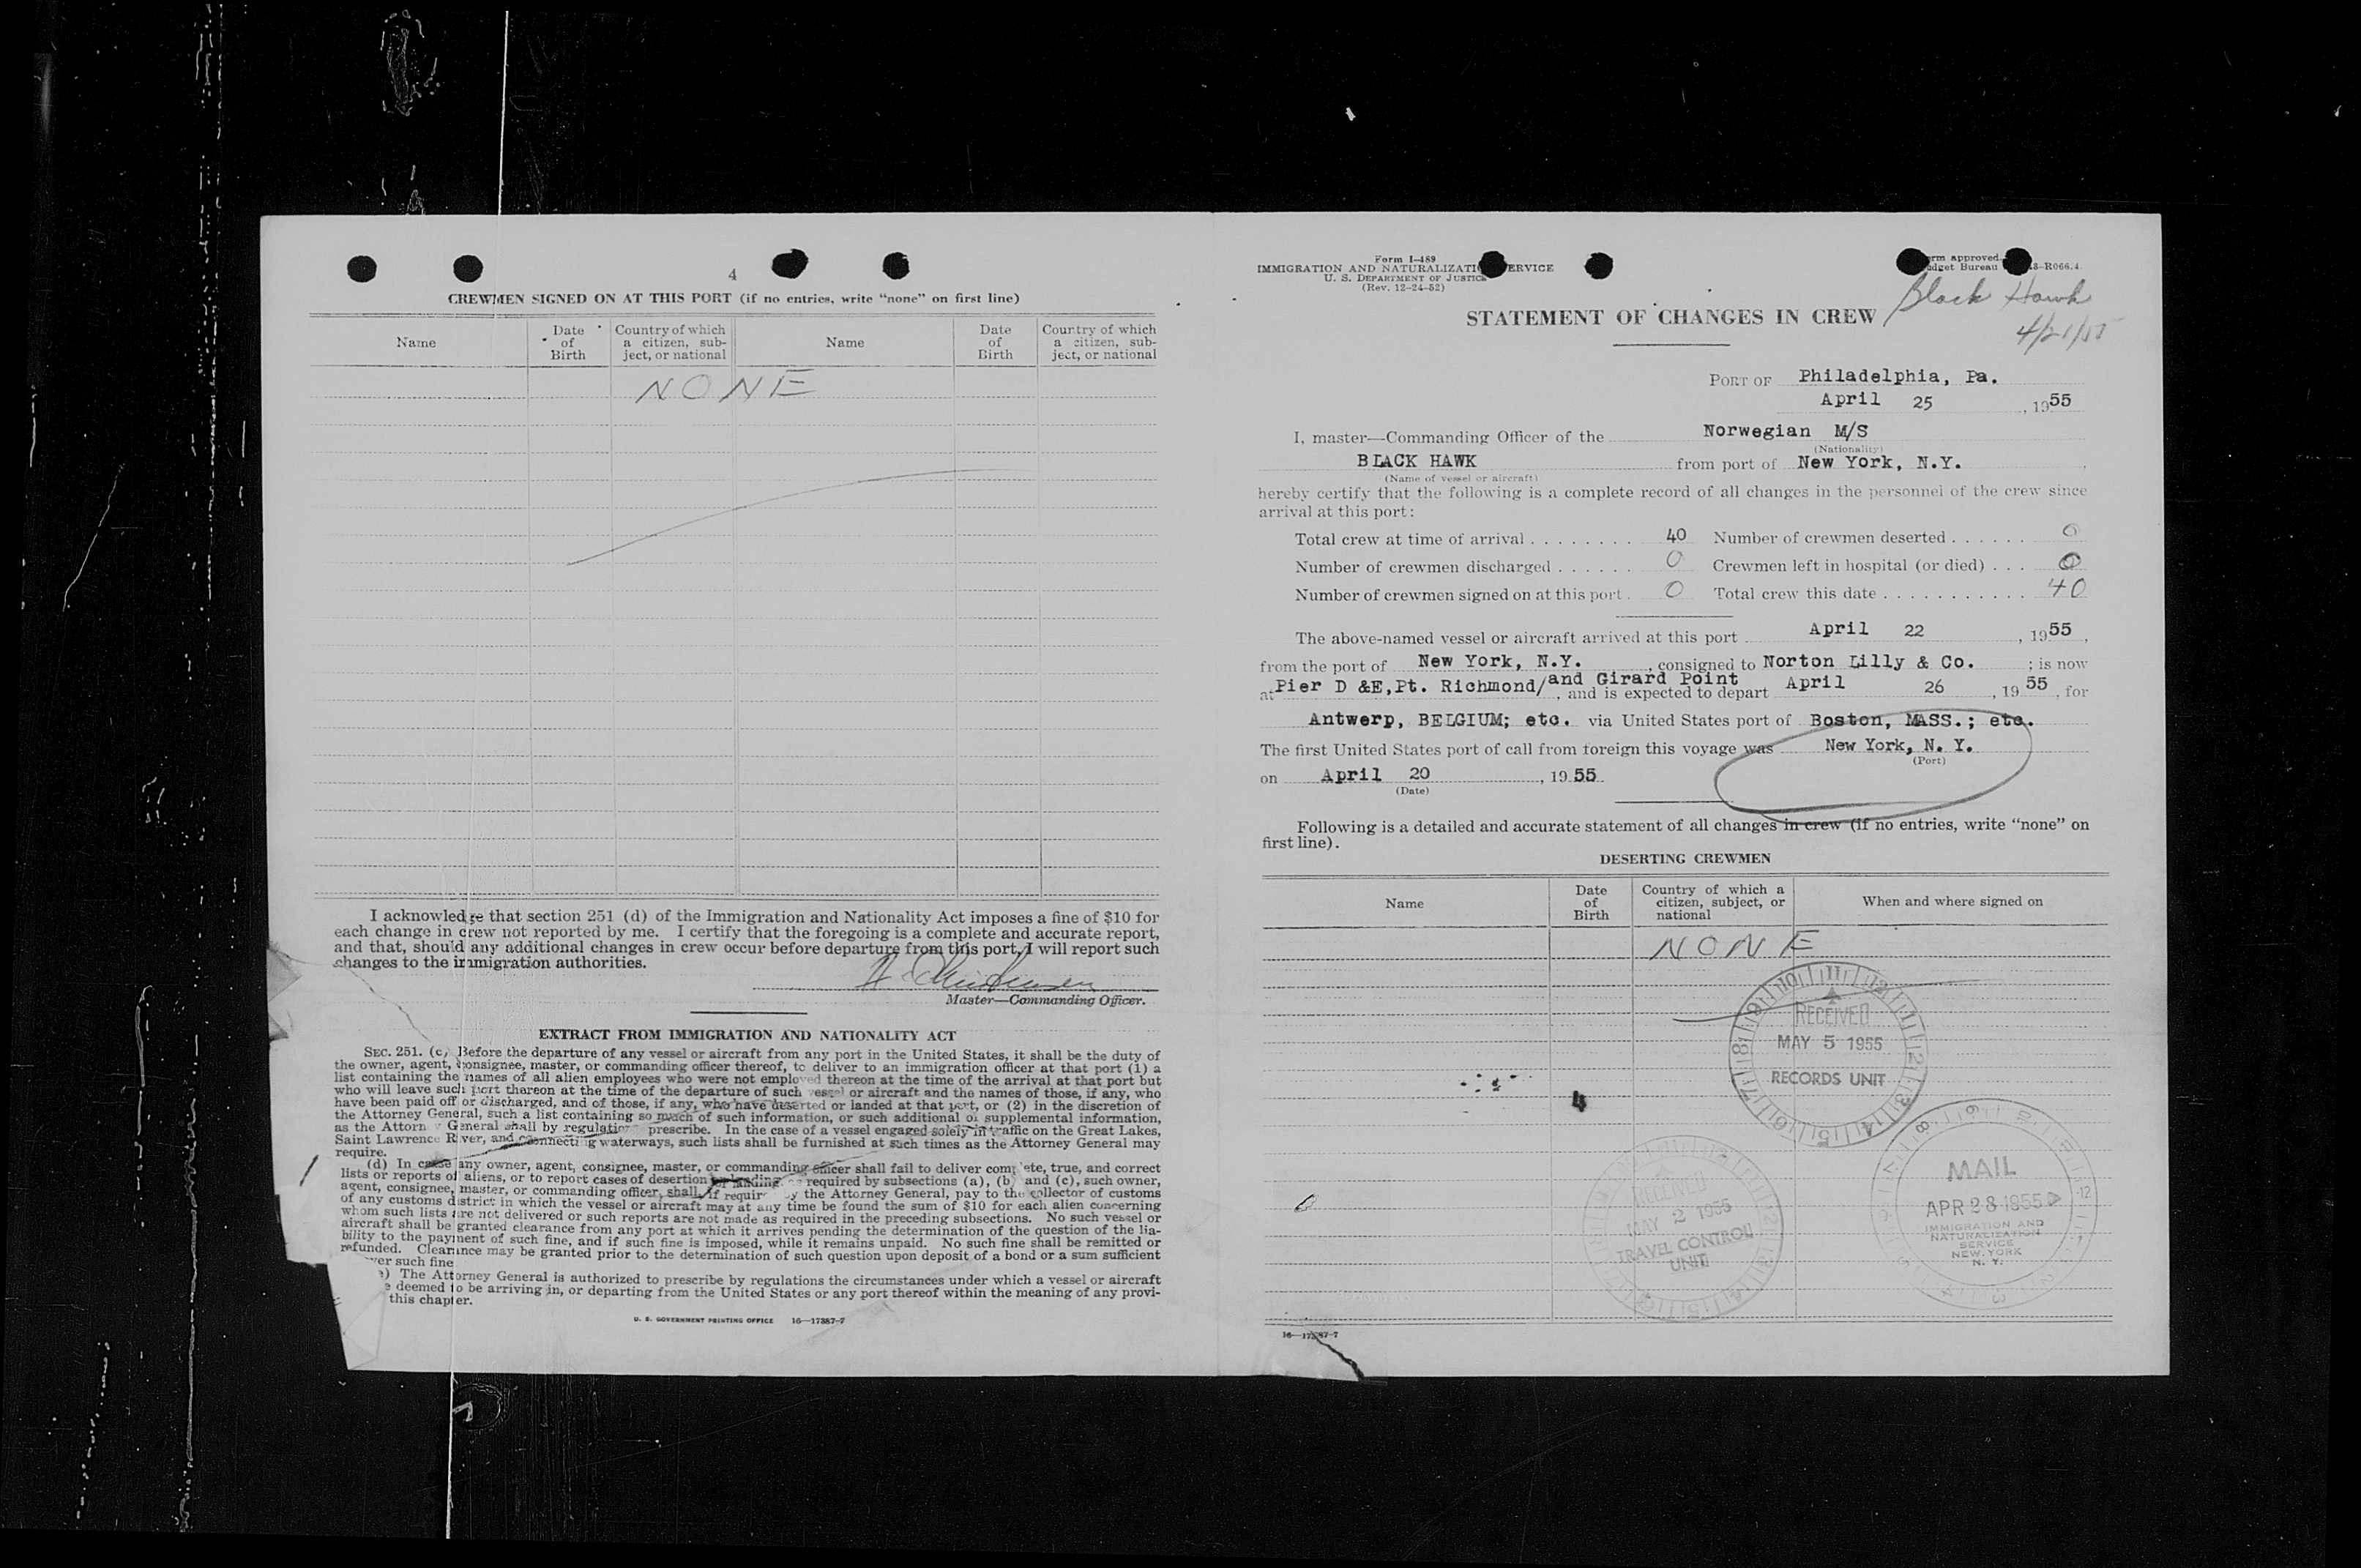 4
CREWMEN SIGNED ON AT THIS PORT (if no entries, write "none" on first line)
Name
Date of Birth
Country of which a citizen, subject, or national
Name
Date of Birth
Country of which a citizen, subject, or national
NONE
I acknowledge that section 251 (d) of the Immigration and Nationality Act imposes a fine of $10 for
each change in crew not reported by me. I certify that the foregoing is a complete and accurate report,
and that, should any additional changes in crew occur before departure from this port, I will report such
changes to the immigration authorities.
Master—Commanding Officer.
EXTRACT FROM IMMIGRATION AND NATIONALITY ACT
SEC. 251. (c) Before the departure of any vessel or aircraft from any port in the United States, it shall be the duty of
the owner, agent, consignee, master, or commanding officer thereof, to deliver to an immigration officer at that port (1) a
list containing the names of all alien employees who were not employed thereon at the time of the arrival at that port but
who will leave such port thereon at the time of the departure of such vessel or aircraft and the names of those, if any, who
have been paid off or discharged, and of those, if any, who have deserted or landed at that port, or (2) in the discretion of
the Attorney General, such a list containing so much of such information, or such additional or supplemental information,
as the Attorney General shall by regulation prescribe. In the case of a vessel engaged solely in traffic on the Great Lakes,
Saint Lawrence River, and connecting waterways, such lists shall be furnished at such times as the Attorney General may
require.
(d) In case any owner, agent, consignee, master, or commanding officer shall fail to deliver complete, true, and correct
lists or reports of aliens, or to report cases of desertion or landing as required by subsections (a), (b) and (c), such owner,
agent, consignee, master, or commanding officer, shall, if required by the Attorney General, pay to the collector of customs
of any customs district in which the vessel or aircraft may at any time be found the sum of $10 for each alien concerning
whom such lists are not delivered or such reports are not made as required in the preceding subsections. No such vessel or
aircraft shall be granted clearance from any port at which it arrives pending the determination of the question of the lia-
bility to the payment of such fine, and if such fine is imposed, while it remains unpaid. No such fine shall be remitted or
refunded. Clearance may be granted prior to the determination of such question upon deposit of a bond or a sum sufficient
ver such fine
e) The Attorney General is authorized to prescribe by regulations the circumstances under which a vessel or aircraft
e deemed to be arriving in, or departing from the United States or any port thereof within the meaning of any provi-
this chapter.
U. S. GOVERNMENT PRINTING OFFICE 16—17387-7
Form I-489
IMMIGRATION AND NATURALIZATION SERVICE
U. S. DEPARTMENT OF JUSTICE
(Rev. 12-24-52)
rm approved.
dget Bureau 3-R066.4
Black Hawk
4/21/55
STATEMENT OF CHANGES IN CREW
PORT OF Philadelphia, Pa.
April 25, 1955
I, master—Commanding Officer of the Norwegian M/S
(Nationality)
BLACK HAWK from port of New York, N.Y.
(Name of vessel or aircraft)
hereby certify that the following is a complete record of all changes in the personnel of the crew since
arrival at this port:
Total crew at time of arrival . . . . . . . . 40 Number of crewmen deserted . . . . . . 0
Number of crewmen discharged . . . . . . 0 Crewmen left in hospital (or died) . . . 0
Number of crewmen signed on at this port . 0 Total crew this date . . . . . . . . . . . 40
The above-named vessel or aircraft arrived at this port April 22, 1955,
from the port of New York, N.Y., consigned to Norton Lilly & Co. ; is now
at Pier D &E,Pt. Richmond/and Girard Point, and is expected to depart April 26, 1955, for
Antwerp, BELGIUM; etc. via United States port of Boston, MASS.; etc.
The first United States port of call from foreign this voyage was New York, N. Y.
(Port)
on April 20, 1955
(Date)
Following is a detailed and accurate statement of all changes in crew (if no entries, write "none" on
first line).
DESERTING CREWMEN
Name
Date of Birth
Country of which a citizen, subject, or national
When and where signed on
NONE
RECEIVED
MAY 5 1955
RECORDS UNIT
4
RECEIVED
MAY 2 1955
TRAVEL CONTROL
UNIT
MAIL
APR 28 1955
IMMIGRATION AND
NATURALIZATION
SERVICE
NEW YORK
N. Y.
16—17387-7